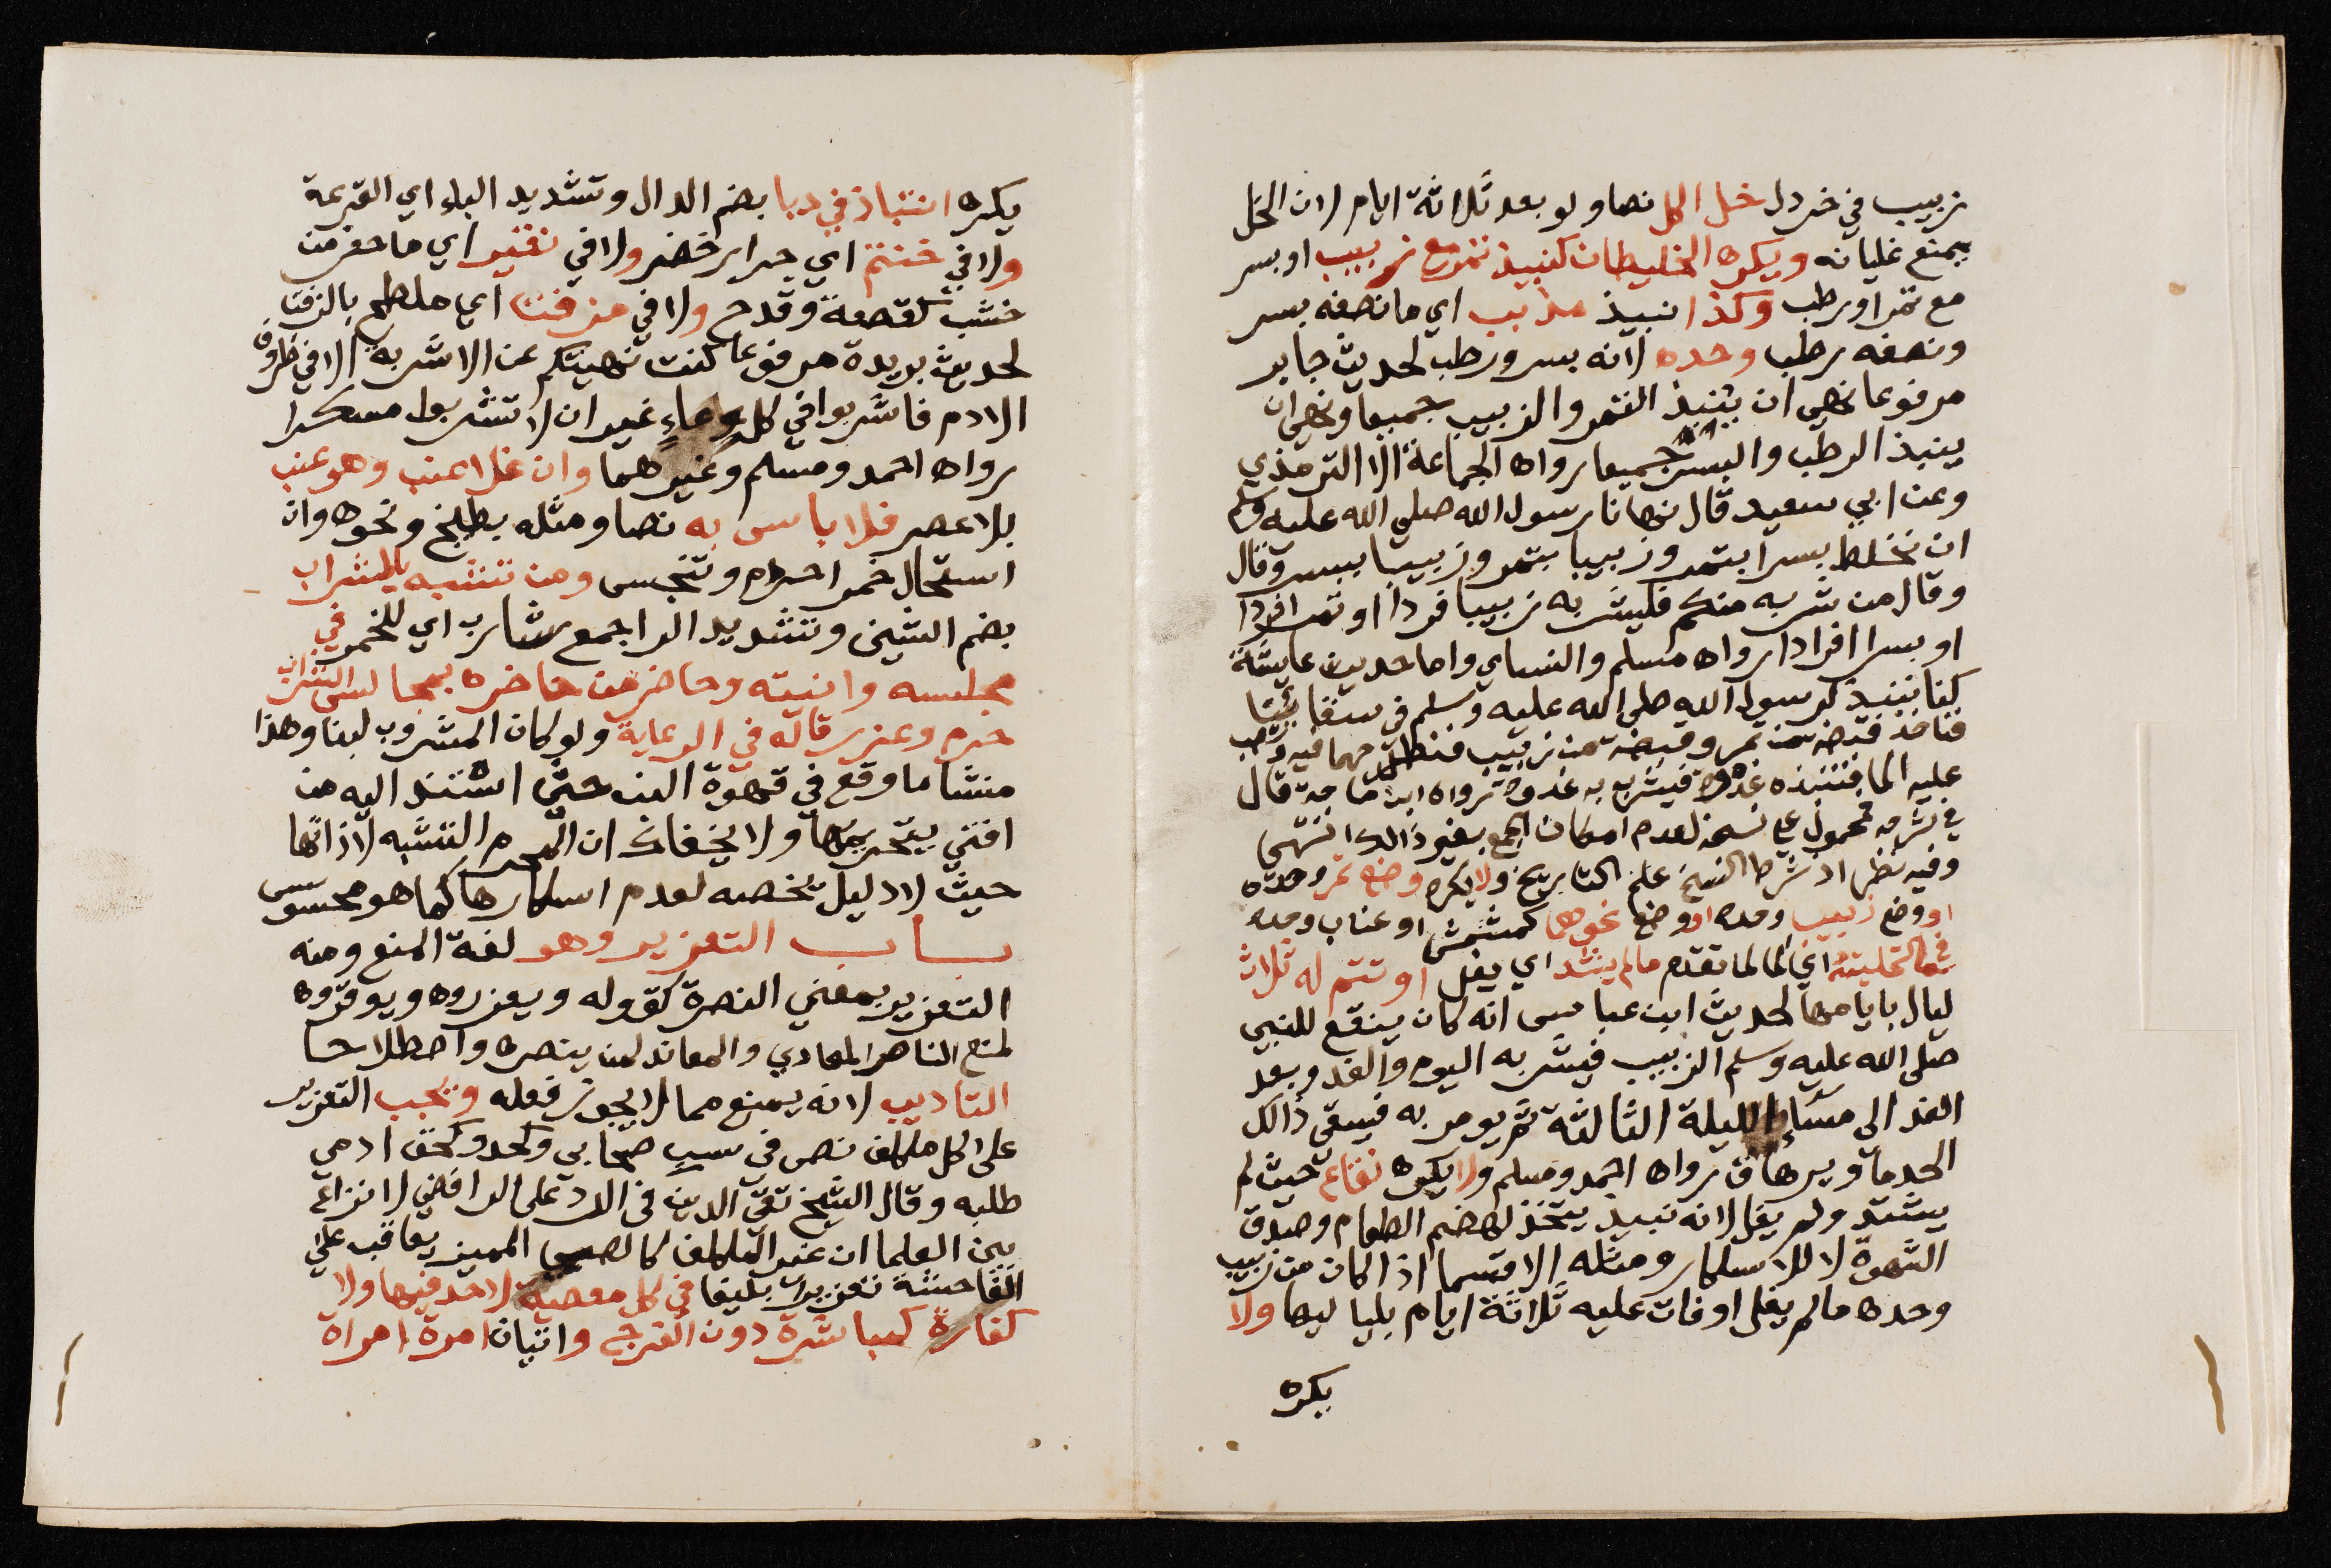 زبيب في خردل خل اكل نصا ولو بعد ثلاثة ايام لان الخل
يمنع غليانه ويكره الخليطان كنبيذ تمر مع زبيب او بسر
مع تمر او رطب وكذا نبيذ مذنب اي ما نصفه بسر
ونصفه رطب وحده لانه بسر ورطب لحديث جابر
مرفوعا نهي ان ينبذ التمر والزبيب جميعا ونهي ان
ينبذ الرطب والبسر جميعا رواه الجماعة الا الترمذي
وعن ابي سعيد قال نهانا رسول الله صلي الله عليه وسلم
ان نخلط بسرا بتمر وزبيبا بتمر وزبيبا ببسر وقال
وقال من شربه منكم فليشربه زبيبا فردا او تمرا فردا
او بسرا فردا رواه مسلم والنساي واما حديث عايشة
كنا ننبذ لرسول الله صلي الله عليه وسلم في سقا
فناخذ قبضة من تمر وقبضة من زبيب فنطرحهما فيه ونصب
عليه الما فننبذه غدوة فيشربه عشية رواه ابن ماجة قال
في شرحه محمول علي نسخه لعدم امكان الجمع بغير ذالك انتهي
وفيه نظر اذ شرط النسخ علم التاريخ ولا يكره وضع تمر وحده
او وضع زبيب وحده او وضع نحوهما كمشمش او عناب وحده
في ما لتحليته اي الما لما تقدم ما لم يشتد اي يغل او تتم له ثلاث
ليال بايامها لحديث ابن عباس انه كان ينقع للنبي
صلي الله عليه وسلم الزبيب فيشربه اليوم والغد وبعد
الغد الي مساء الليلة الثالثة ثم يومر به فيسقي ذالك
الخدم او يهراق رواه احمد ومسلم ولا يكره فقاع حيث لم
يشتد ولم يغل لانه نبيذ يتخذ لهضم الطعام وصدق
الشهوة لا للاسكار ومثله الاقسما اذا كان من زبيب
وحده ما لم يغل او فات عليه ثلاثة ايام بلياليها ولا
يكره
يكره انتباذ في دبا بضم الدال وتشديد الباء اي القرعة
ولا في حنتم اي جرار خضر ولا في نقير اي ما حفر من
خشب كقصعة وقدح ولا في مزفت اي ملطخ بالزفت
لحديث بريدة مرفوعا كنت نهيتكم عن الاشربة الا في ظروف
الادم فاشربوا في كل وعاء غير ان لا تشربوا مسكرا
رواه احمد ومسلم وغيرهما وان غلا عنب وهو عنب
بلا عصر فلا باس به نصا ومثله بطيخ ونحوه وان
استحال خمرا حرم وتنجس ومن تشبه بالشراب
بضم الشين وتشديد الرا جمع شارب اي للخمر في
مجلسه وانيته وحاضر من حاضره بمجالس الشراب
حرم وعزر قاله في الرعاية ولو كان المشروب لبنا وهذا
منشا ما وقع في قهوة البن حتى استند اليه من
افتي بتحريمها ولا يخفاك ان المحرم التشبه لا ذاتها
حيث لا دليل يخصه لعدم اسكارها كما هو محسوس
باب التعزير وهو لغة المنع ومنه
التعزير بمعني النصرة كقوله ويعزروه ويوقروه
لمنع الناصر المعادي والمعاند لمن ينصره واصطلاحا
التاديب لانه يمنع مما لا يجوز فعله ويجب التعزير
على كل مكلف نص في سب صحابي وكحد وكحق ادمي
طلبه وقال الشيخ تقي الدين في الرد على الرافضي لا نزاع
بين العلما ان غير المكلف كالصبي المميز يعاقب علي
الفاحشة تعزيرا بليغا في كل معصية لا حد فيها ولا
كفارة كمباشرة دون الفرج واتيان امرة امراة